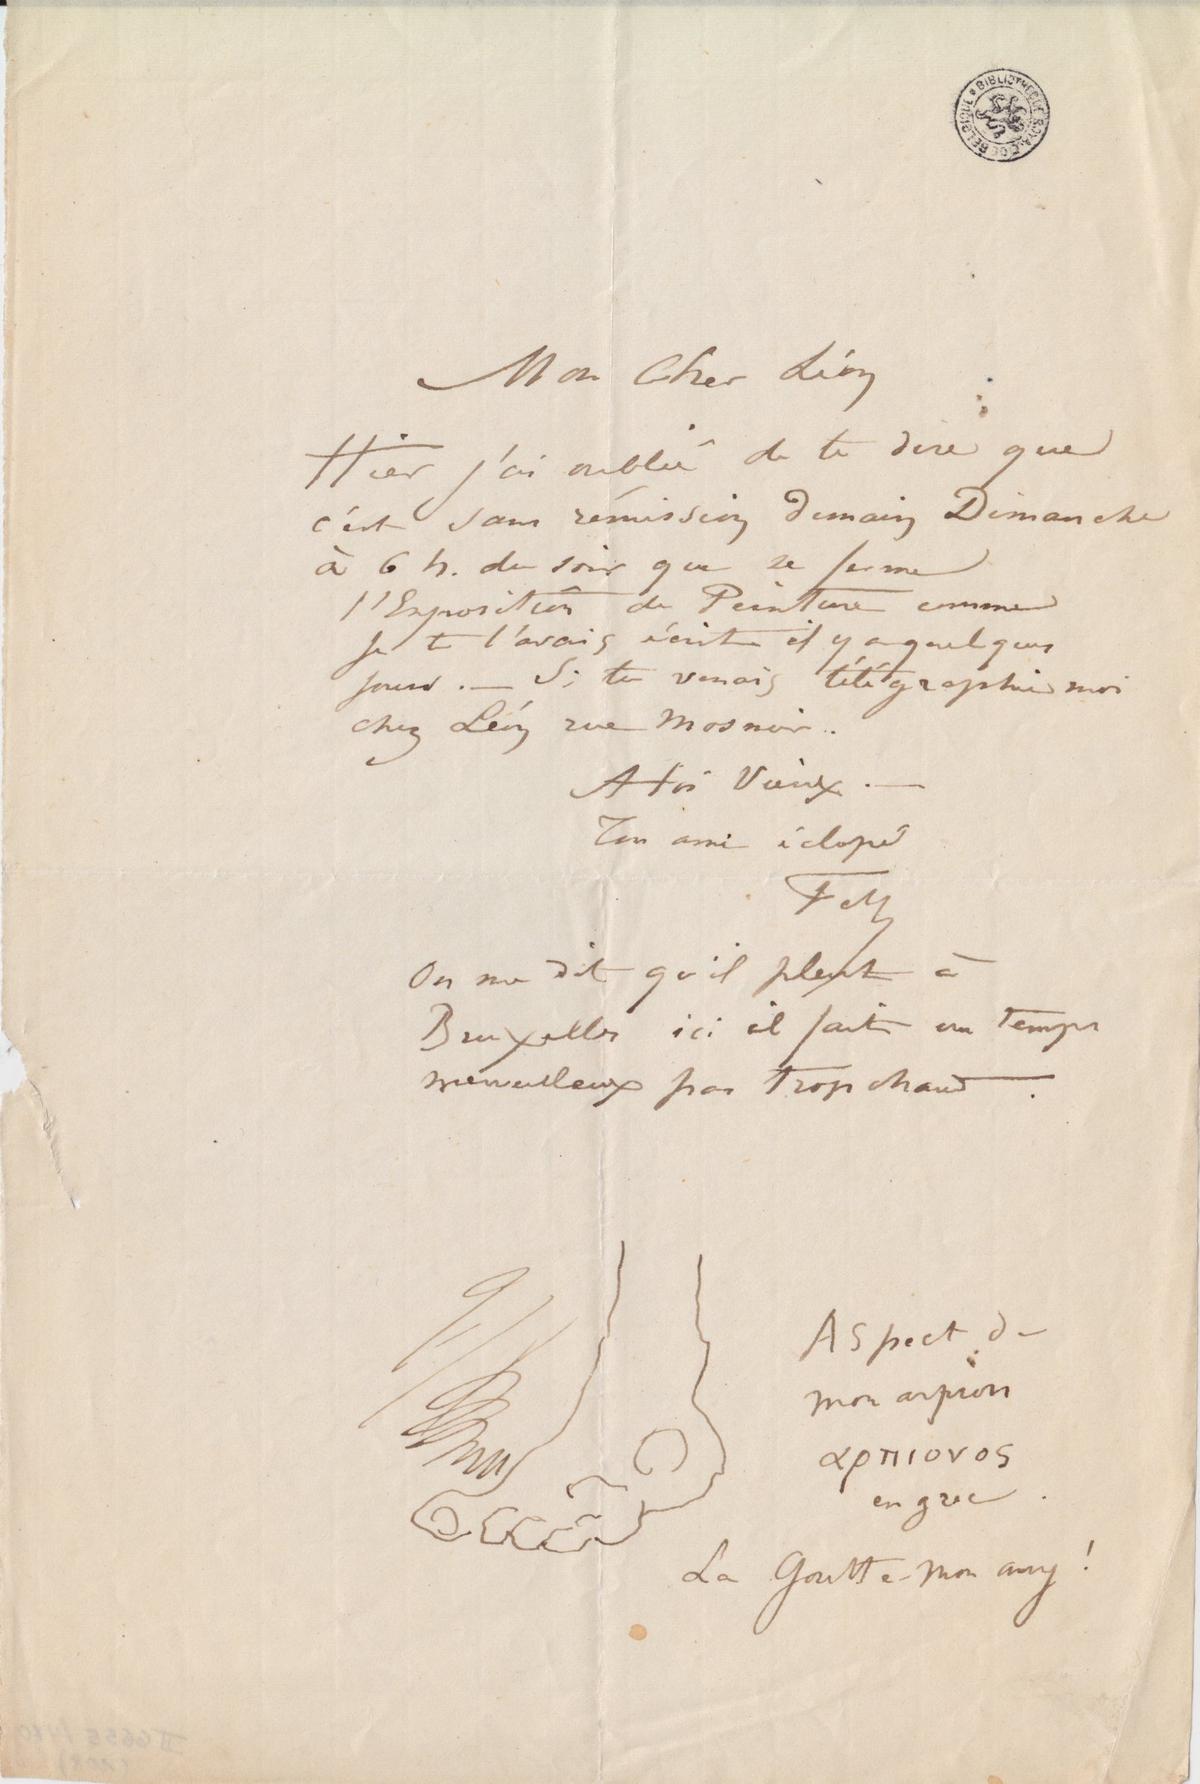 BIBLIOTHEQUE ROYALE DE BELGIQUE
Mon Cher Léon
Hier j'ai oublié de te dire que
c'est sans rémission demain Dimanche
à 6 h. du soir que se ferme
l'Exposition de Peinture comme
je te l'avais écrit il y a quelques
jours. — Si tu venais télégraphie moi
chez Léon rue Mosnier..
A toi Vieux. —
Ton ami éclopé
Fely
On me dit qu'il pleut à
Bruxelles ici il fait un temps
merveilleux pas trop chaud.
Aspect de
mon arpion
αρπιονος
en grec.
La Goutte mon amy!
II 6655/470